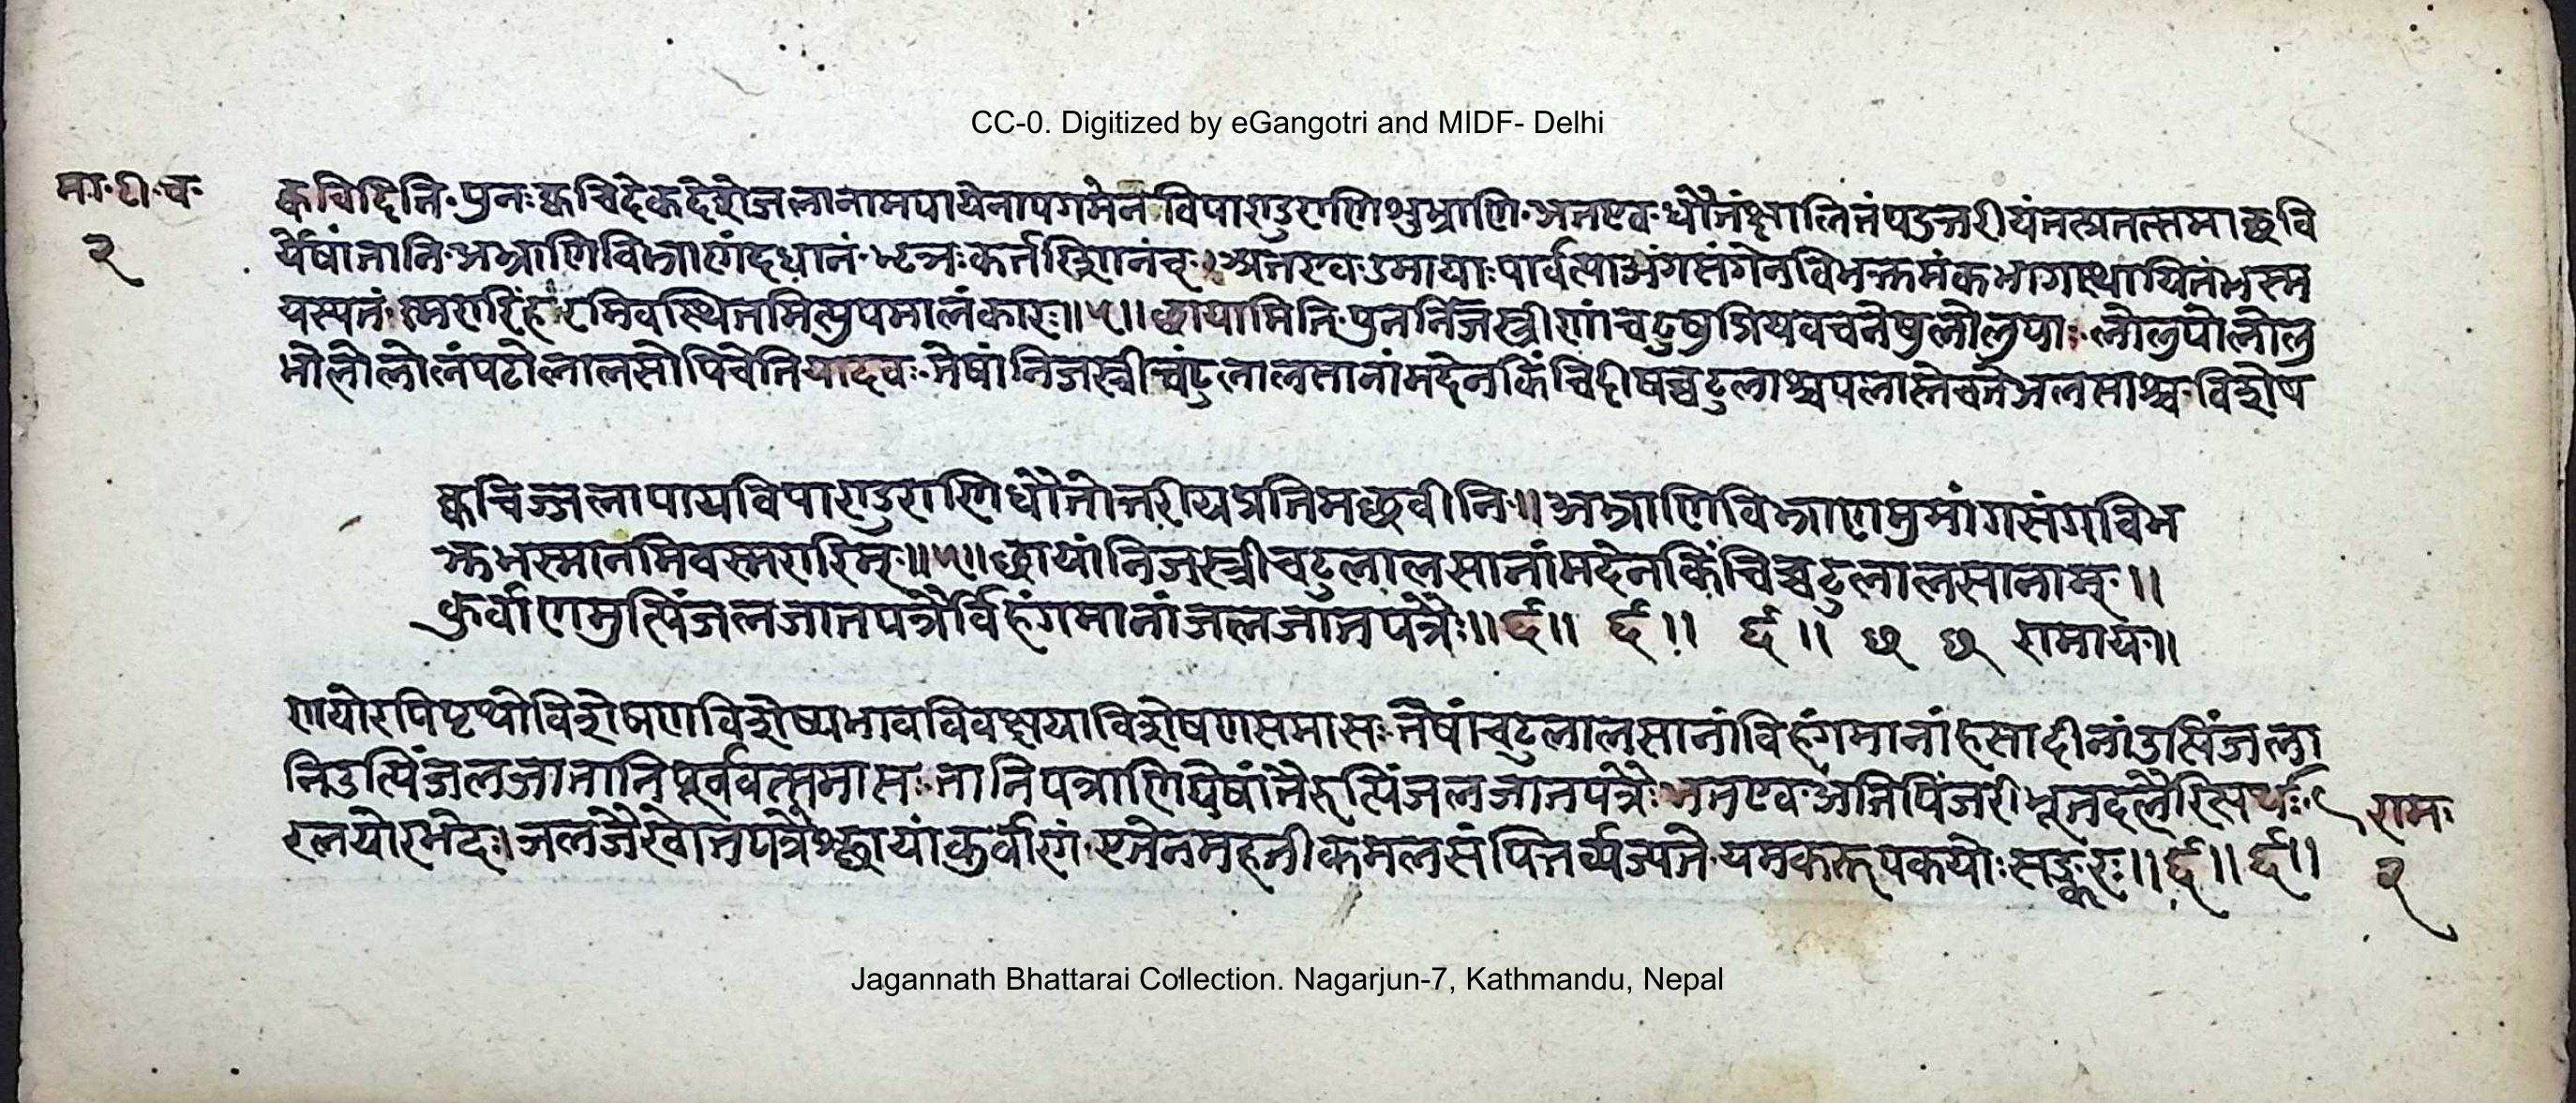 CC-0. Digitized by eGangotri and MIDF- Delhi
मा॰टी॰च॰
२
क्वचिदिति॰पुनःक्वचिदेकदेशेजलानामपायेनापगमेन॰विपाण्डुराणिशुभ्राणि॰अतएव॰धौतंक्षालितंपडुत्तरीयंतत्प्रतत्तमाछवि
र्येषांतानि॰अभ्राणिविभ्राणंदधानं॰भृञःकर्तरिशानच्॥अतएव॰उमायाःपार्वत्याअंगसंगेनविभक्तमंकभागास्थायितंभस्म
यस्यतं॰स्मरारिंहरमिवस्थितमित्युपमालंकारः॥५॥छायामिति॰पुनर्निजस्त्रीणांचटुषुप्रियवचनेषुलोलुपाः॰लोलुपोलोलु
भोलोलोलंपटोलालसोपिचेतियादवः॰तेषांनिजस्त्रीचटुलालसानांमदेनकिंचिदीषच्चटुलाश्चपलास्तेचतेअलसाश्च॰विशेष
क्वचिज्जलापायविपाण्डुराणिधौतोत्तरीयप्रतिमछवीनि॰॥अभ्राणिविभ्राणमुमांगसंगविभ
क्तभस्मानमिवस्मरारिम्॰॥५॥छायांनिजस्त्रीचटुलालसानांमदेनकिंचिच्चटुलालसानाम्॰॥
कुर्वाणमुत्पिंजलजातपत्रैर्विहंगमानांजलजातपत्रैः॥६॥ ६॥ ६॥ छ छ रामाय॰॥
णयोरपिपृथोविशेषणविशेष्यभावविवक्षयाविशेषणसमासः॰तेषांचटुलालसानांविहंगमानांहसादीनांउत्पिंजला
निउत्पिंजलजातानिपूर्ववत्समासः॰तानिपत्राणियेषांतैरुत्पिंजलजातपत्रैः॰अतएव॰अतिपिंजरीभूतदलैरित्यर्थः॰
रलयोरभेदः॥जलजैरेवातपत्रैश्छायांकुर्वाणं॰एतेनमहतीकमलसंपत्तिर्व्यज्यते॰यमकरूपकयोःसङ्करः॥६॥६॥
राम॰
२
Jagannath Bhattarai Collection. Nagarjun-7, Kathmandu, Nepal